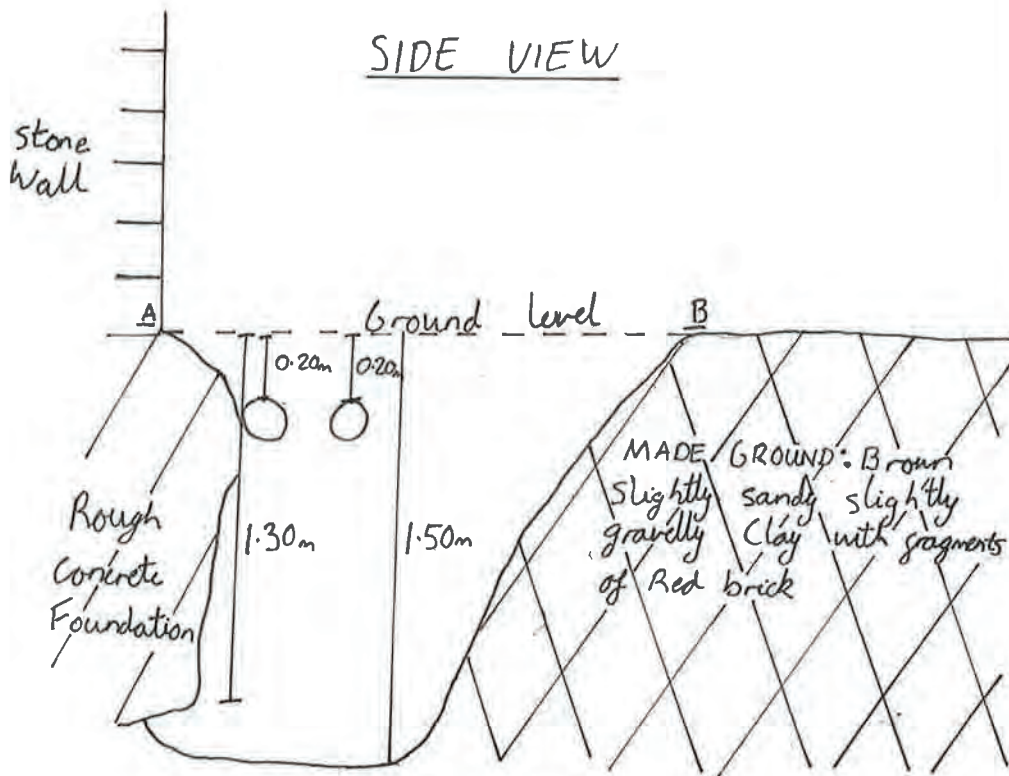 SIDE VIEW
Stone
Wall
A
Ground level
B
0.20m
0.20m
Rough
Concrete
Foundation
1.30m
1.50m
MADE GROUND: Brown
Slightly sandy slightly
gravelly Clay with fragments
of Red brick